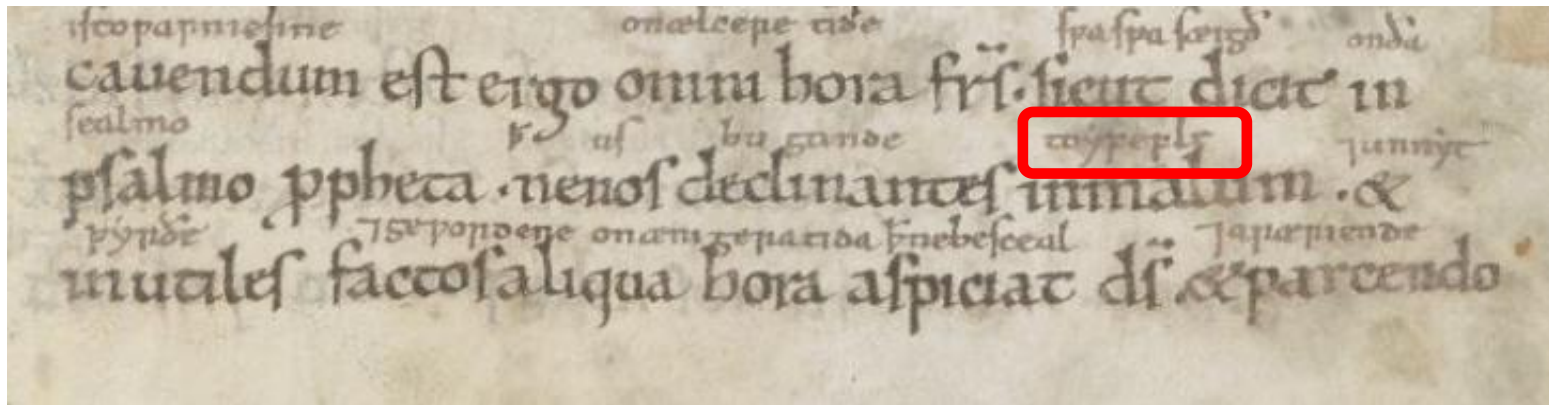 iscoƿarniesine onælceƿe tide sƿasƿa sægð onðā
cauendum est ergo omni hora frs̄. sicut dicit in
sealmo þ us bugande toẏfeplꝭ ⁊unnẏt
psalmo ꝓpheta . nenos declinantes inmalum . &
ƿẏrðe ⁊geƿordene onænigeratida þnebesceal ⁊aræriende
inutiles factos aliqua hora aspiciat dꝭ̄ . & parcendo